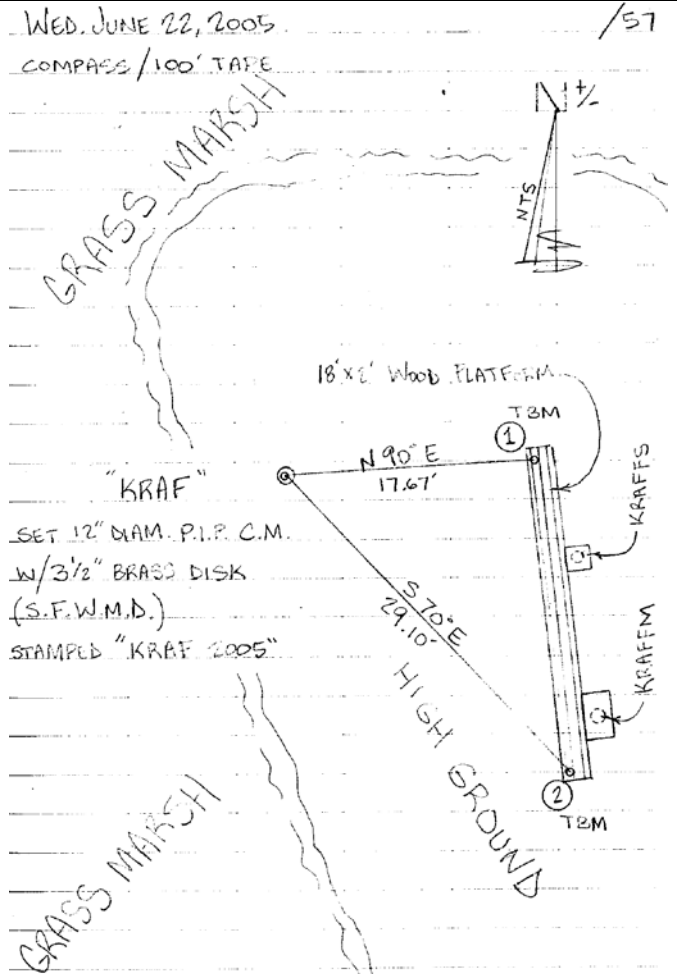 WED. JUNE 22, 2005
/57
COMPASS/100' TAPE
GRASS MARSH
N +/-
NTS
18'x2' WOOD PLATFORM
TBM
1
N 90° E
17.67'
"KRAF"
KRAFFS
SET 12" DIAM. P.I.P. C.M.
W/3½" BRASS DISK
(S.F.W.M.D.)
STAMPED "KRAF 2005"
S 70° E
29.10'
KRAFFM
HIGH GROUND
2
TBM
GRASS MARSH